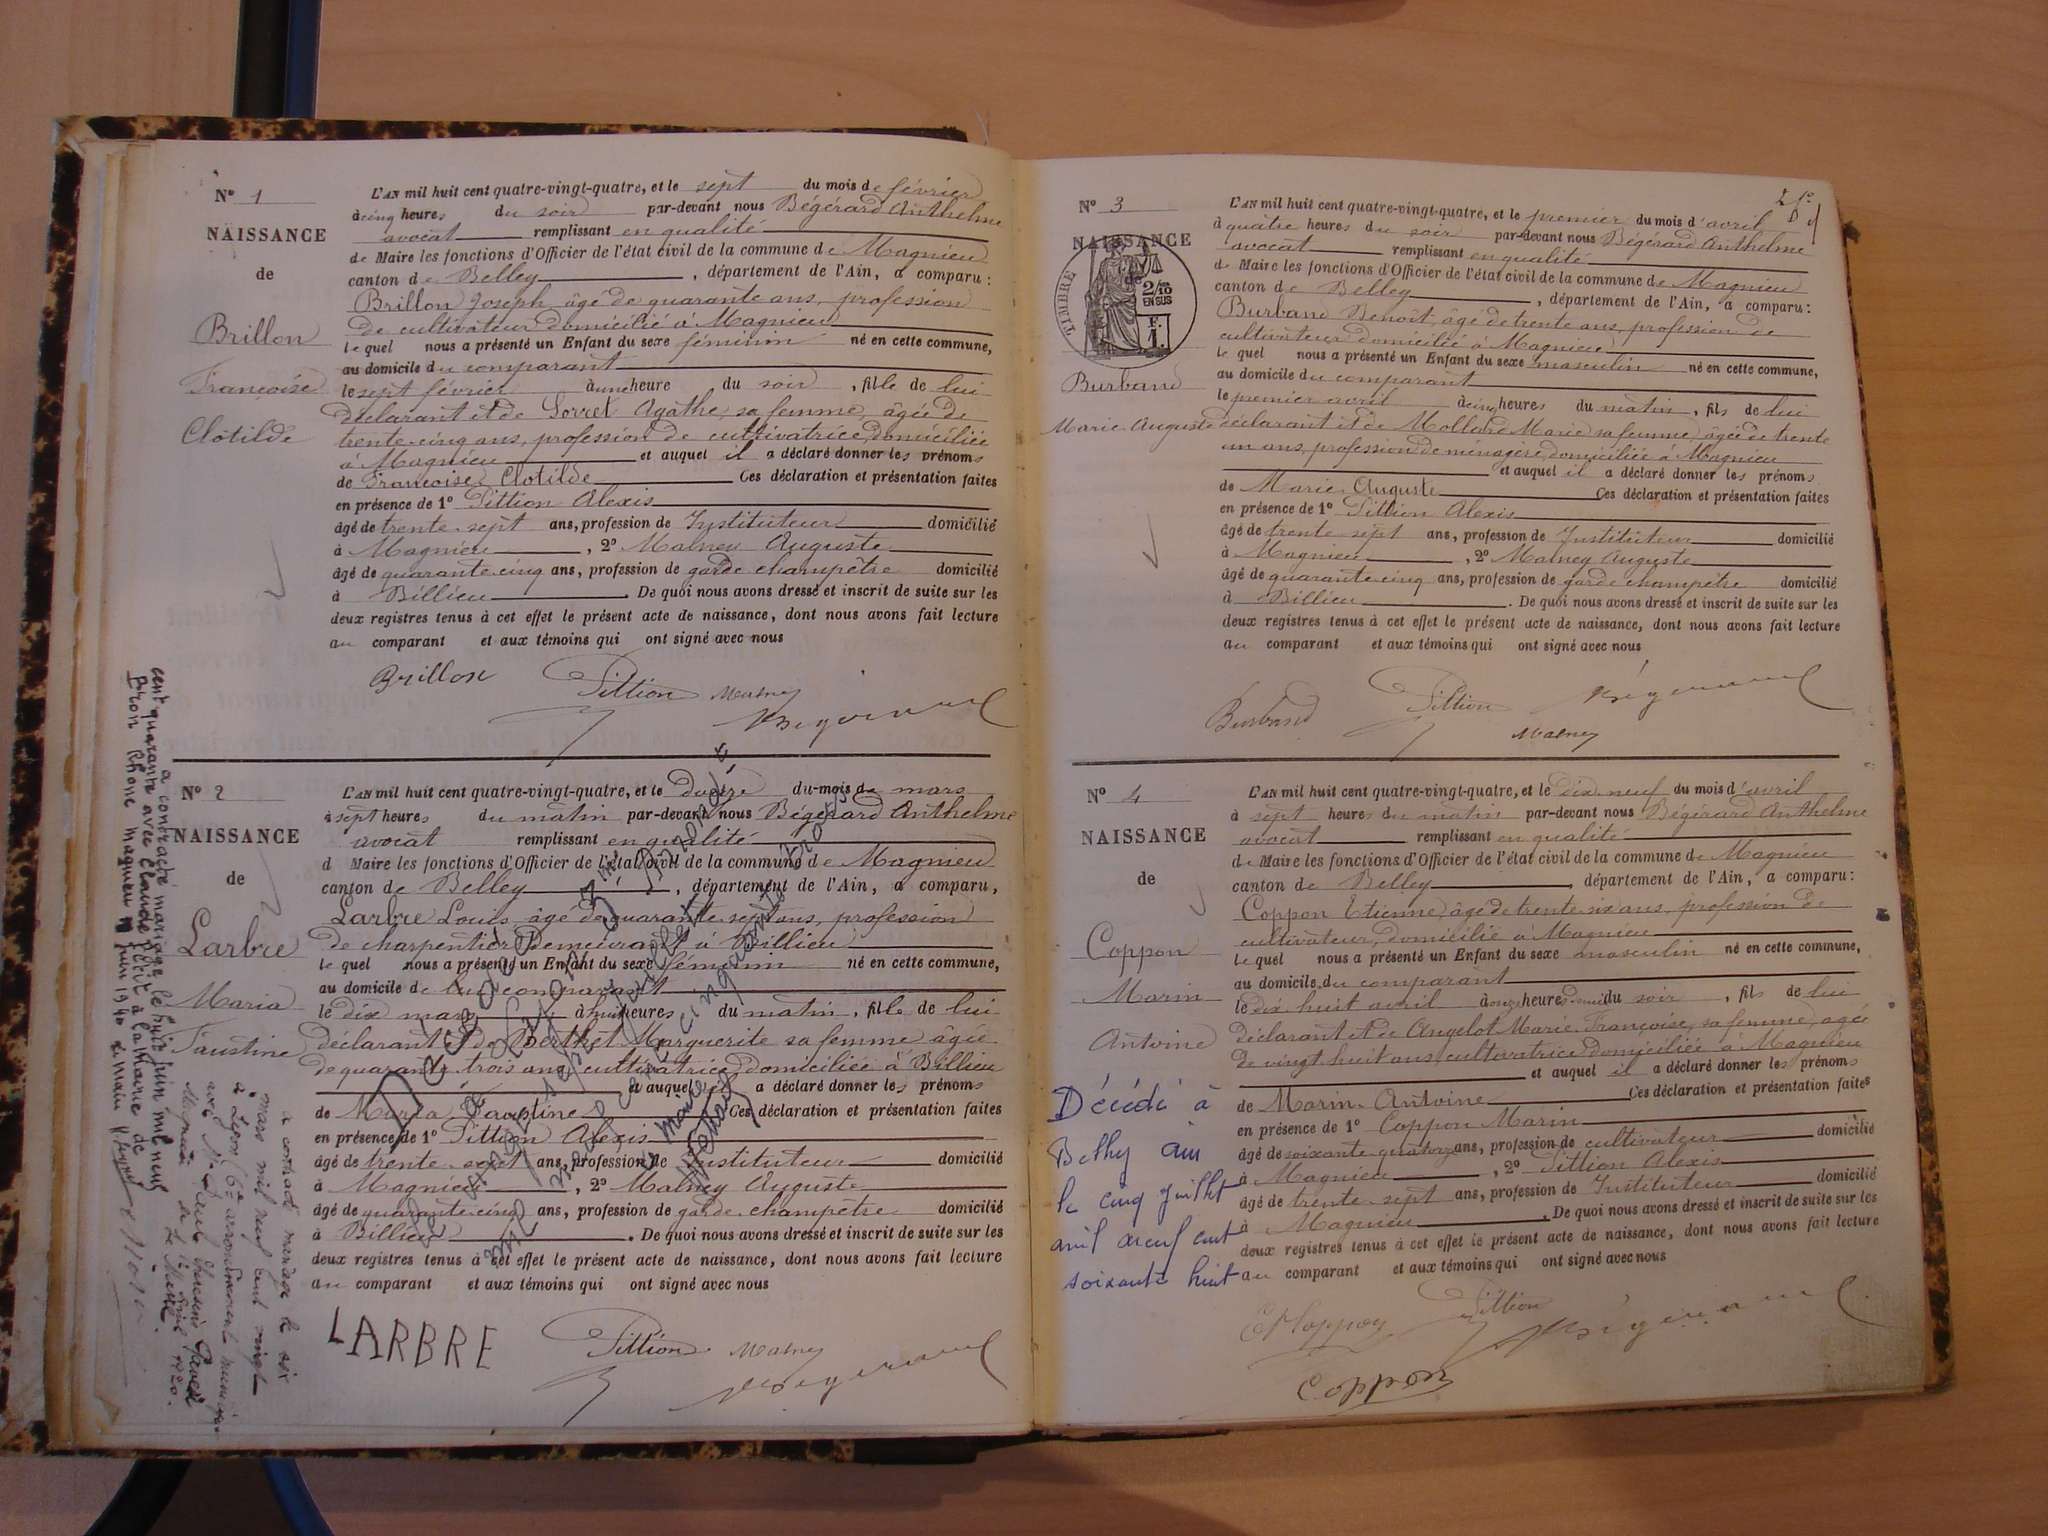 N° 1
NAISSANCE
de
Brillon
Françoise
Clotilde
L'AN mil huit cent quatre-vingt-quatre, et le sept du mois de février
à cinq heures du soir par-devant nous Bégérard Anthelme
avocat remplissant en qualité
de Maire les fonctions d'Officier de l'état civil de la commune de Magnieu
canton de Belley, département de l'Ain, a comparu :
Brillon Joseph, âgé de quarante ans, profession
de cultivateur domicilié à Magnieu
le quel nous a présenté un Enfant du sexe féminin né en cette commune,
au domicile du comparant
le sept février à une heure du soir, fille de lui
déclarant et de Sorret Agathe, sa femme, âgée de
trente-cinq ans, profession de cultivatrice, domiciliée
à Magnieu et auquel il a déclaré donner les prénoms
de Françoise Clotilde Ces déclaration et présentation faites
en présence de 1° Pittion Alexis
âgé de trente-sept ans, profession de Instituteur domicilié
à Magnieu, 2° Malney Auguste
âgé de quarante cinq ans, profession de garde champêtre domicilié
à Billieu. De quoi nous avons dressé et inscrit de suite sur les
deux registres tenus à cet effet le présent acte de naissance, dont nous avons fait lecture
au comparant et aux témoins qui ont signé avec nous
Brillon Pittion Malney Bégérard
N° 2
NAISSANCE
de
Larbre
Maria
Faustine
L'AN mil huit cent quatre-vingt-quatre, et le du mois de mars
à sept heures du matin par-devant nous Bégérard Anthelme
avocat remplissant en qualité
d Maire les fonctions d'Officier de l'état civil de la commune de Magnieu
canton de Belley, département de l'Ain, a comparu,
Larbre Louis, âgé de quarante sept ans, profession
de charpentier demeurant à Billieu
le quel nous a présenté un Enfant du sexe féminin né en cette commune,
au domicile de lui comparant
le dix mars à huit heures du matin, fille de lui
déclarant et de Berthet Marguerite sa femme âgée
de quarante trois ans, cultivatrice, domiciliée à Billieu
et auquel il a déclaré donner les prénoms
de Maria Faustine Ces déclaration et présentation faites
en présence de 1° Pittion Alexis
âgé de trente-sept ans, profession de Instituteur domicilié
à Magnieu, 2° Malney Auguste
âgé de quarante cinq ans, profession de garde champêtre domicilié
à Billieu. De quoi nous avons dressé et inscrit de suite sur les
deux registres tenus à cet effet le présent acte de naissance, dont nous avons fait lecture
au comparant et aux témoins qui ont signé avec nous
LARBRE Pittion Malney Bégérard
a contracté mariage le huit juin mil neuf
cent quarante avec Claude à la mairie de
Bron Rhône Magnieu juin 1940 le maire
a contracté mariage le six
mars mil neuf cent vingt
à Lyon (6e arrondissement
avec
1920.
Décédée
mil neuf cent cinquante
le maire
N° 3
NAISSANCE
de
TIMBRE
2/10
EN SUS
F.
1.
Burband
Marie Auguste
L'AN mil huit cent quatre-vingt-quatre, et le premier du mois d'avril
à quatre heures du soir par-devant nous Bégérard Anthelme
avocat remplissant en qualité
de Maire les fonctions d'Officier de l'état civil de la commune de Magnieu
canton de Belley, département de l'Ain, a comparu :
Burband Benoit, âgé de trente ans, profession de
cultivateur domicilié à Magnieu
le quel nous a présenté un Enfant du sexe masculin né en cette commune,
au domicile du comparant
le premier avril à cinq heures du matin, fils de lui
déclarant et de Mollard Marie sa femme, âgée de trente
un ans, profession de ménagère, domiciliée à Magnieu
et auquel il a déclaré donner les prénoms
de Marie Auguste Ces déclaration et présentation faites
en présence de 1° Pittion Alexis
âgé de trente sept ans, profession de Instituteur domicilié
à Magnieu, 2° Malney Auguste
âgé de quarante cinq ans, profession de garde champêtre domicilié
à Billieu. De quoi nous avons dressé et inscrit de suite sur les
deux registres tenus à cet effet le présent acte de naissance, dont nous avons fait lecture
au comparant et aux témoins qui ont signé avec nous
Burband Pittion Bégérard
Malney
N° 4
NAISSANCE
de
Coppon
Marin
Antoine
L'AN mil huit cent quatre-vingt-quatre, et le dix neuf du mois d'avril
à sept heures du matin par-devant nous Bégérard Anthelme
avocat remplissant en qualité
de Maire les fonctions d'Officier de l'état civil de la commune de Magnieu
canton de Belley, département de l'Ain, a comparu :
Coppon Etienne, âgé de trente six ans, profession de
cultivateur, domicilié à Magnieu
le quel nous a présenté un Enfant du sexe masculin né en cette commune,
au domicile du comparant
le dix huit avril à onze heures demi du soir, fils de lui
déclarant et de Angelot Marie Françoise, sa femme, âgée
de vingt huit ans, cultivatrice domiciliée à Magnieu
et auquel il a déclaré donner les prénoms
de Marin Antoine Ces déclaration et présentation faites
en présence de 1° Coppon Marin
âgé de soixante quatorze ans, profession de cultivateur domicilié
à Magnieu, 2° Pittion Alexis
âgé de trente sept ans, profession de Instituteur domicilié
à Magnieu. De quoi nous avons dressé et inscrit de suite sur les
deux registres tenus à cet effet le présent acte de naissance, dont nous avons fait lecture
au comparant et aux témoins qui ont signé avec nous
Décédé à
Belley Ain
le cinq Juillet
mil neuf cent
soixante huit
Coppon Pittion Bégérard
Coppon